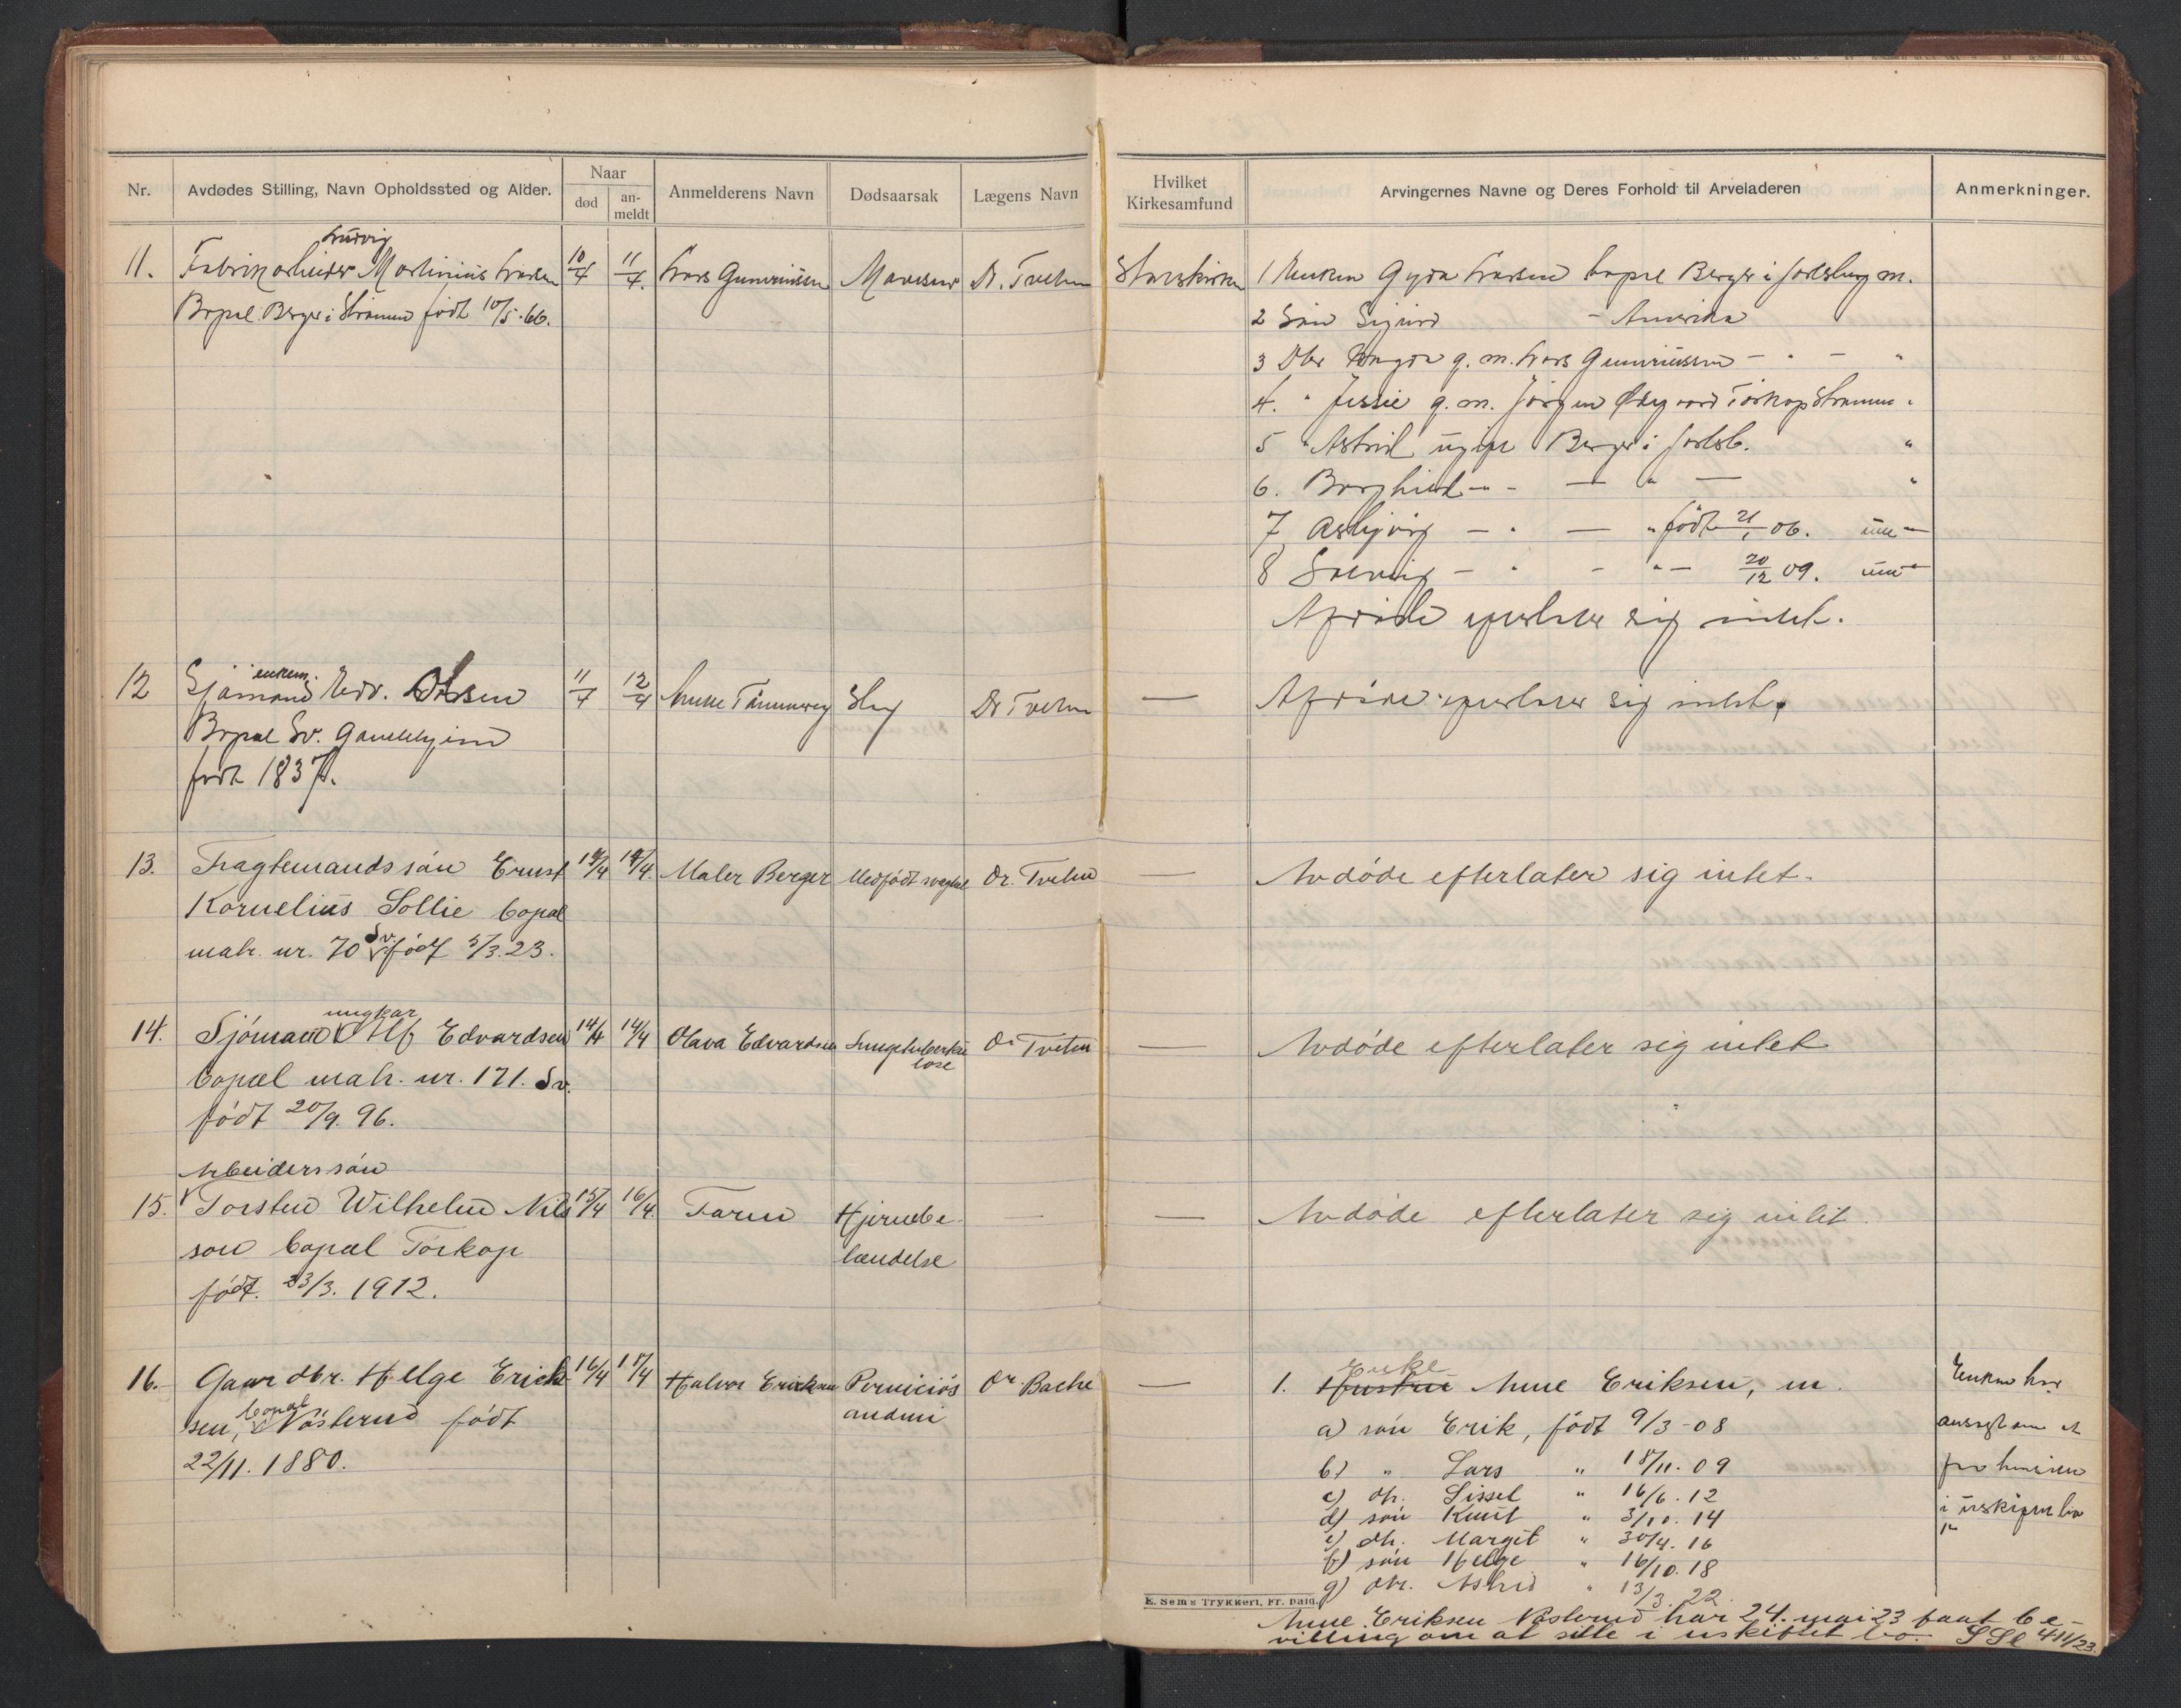 Nr.
Avdødes Stilling, Navn Opholdssted og Alder.
Naar
død
an-
meldt
Anmelderens Navn
Dødsaarsak
Lægens Navn
Hvilket
Kirkesamfund
Arvingernes Navne og Deres Forhold til Arveladeren
Anmerkninger.
11.
Fabrikarbeider Martinius Larsen
Bopæl Berger i Strømm født 10/5.66.
10/4
11/4.
Lars Guneriussen
Dr. Tveten
Statskirken
1 Enken Gyda Larsen bopæl Berger i Jarlsberg m.
2 Søn Sigurd - Amerika
3 Dtr g. m. Lars Guneriussen - " - "
4. " Jessie g. m. Jørgen Ødegaard Torkop Strømm "
5 " Astrid ugift Berger i Jarlsb. "
6. Borghild - " - — " — "
7 Asbjørg — " — " født 21/1 06. um
8 Solveig — " - " — 20/12 09. um
Afdøde efterlater sig intet.
12
enkem.
Sjømand Edv. Olsen
Bopæl Sv. Gamlehjem
født 1837.
11/4
12/4
Slag
Dr Tveten
—
Afdøde efterlater sig intet.
13.
Fragtemandssøn Ernst
Kornelius Sollie bopæl
matr. nr. 70 Sv. født 5/3.23.
14/4
14/4.
Maler Berger
Medfødt svaghet
Dr. Tveten
—
Avdøde efterlater sig intet.
14.
ungkar
Sjømand Alf Edvardsen
bopæl matr. nr. 171. Sv.
født 20/9. 96.
14/4
14/4
Olava Edvardsen
Lungetuberku
lose
Dr Tveten
—
Avdøde efterlater sig intet
Arbeiderssøn
15.
Torsten Wilhelm Nils
son bopæl Torkop
født. 23/3. 1912.
15/4
16/4.
Faren
Hjernebe-
tændelse
—
—
Avdøde efterlater sig intet.
16.
Gaardbr. Helge Erick
sen, bopæl Nøsterud født
22/11. 1880.
16/4
18/4
Halvor Ericksen
Perniciøs
anæmi
Dr Bache
—
Enke
1. Hustru Anne Eriksen, m.
a) søn Erik, født 9/3-08
b) " Lars " 18/11. 09
c) dtr. Sissel " 16/6. 12
d) søn Knut " 3/10. 14
e) dtr. Margit " 30/4. 16
f) søn Helge " 16/10. 18
g) dtr. Astrid " 13/3. 22.
Enken har
ansøgt om at
forbli
i uskiftet bo
E. Sems Trykkeri, Fr. hald.
Anne Eriksen Nøsterud har 24. mai 23 faat be-
villing om at sitte i uskiftet bo.